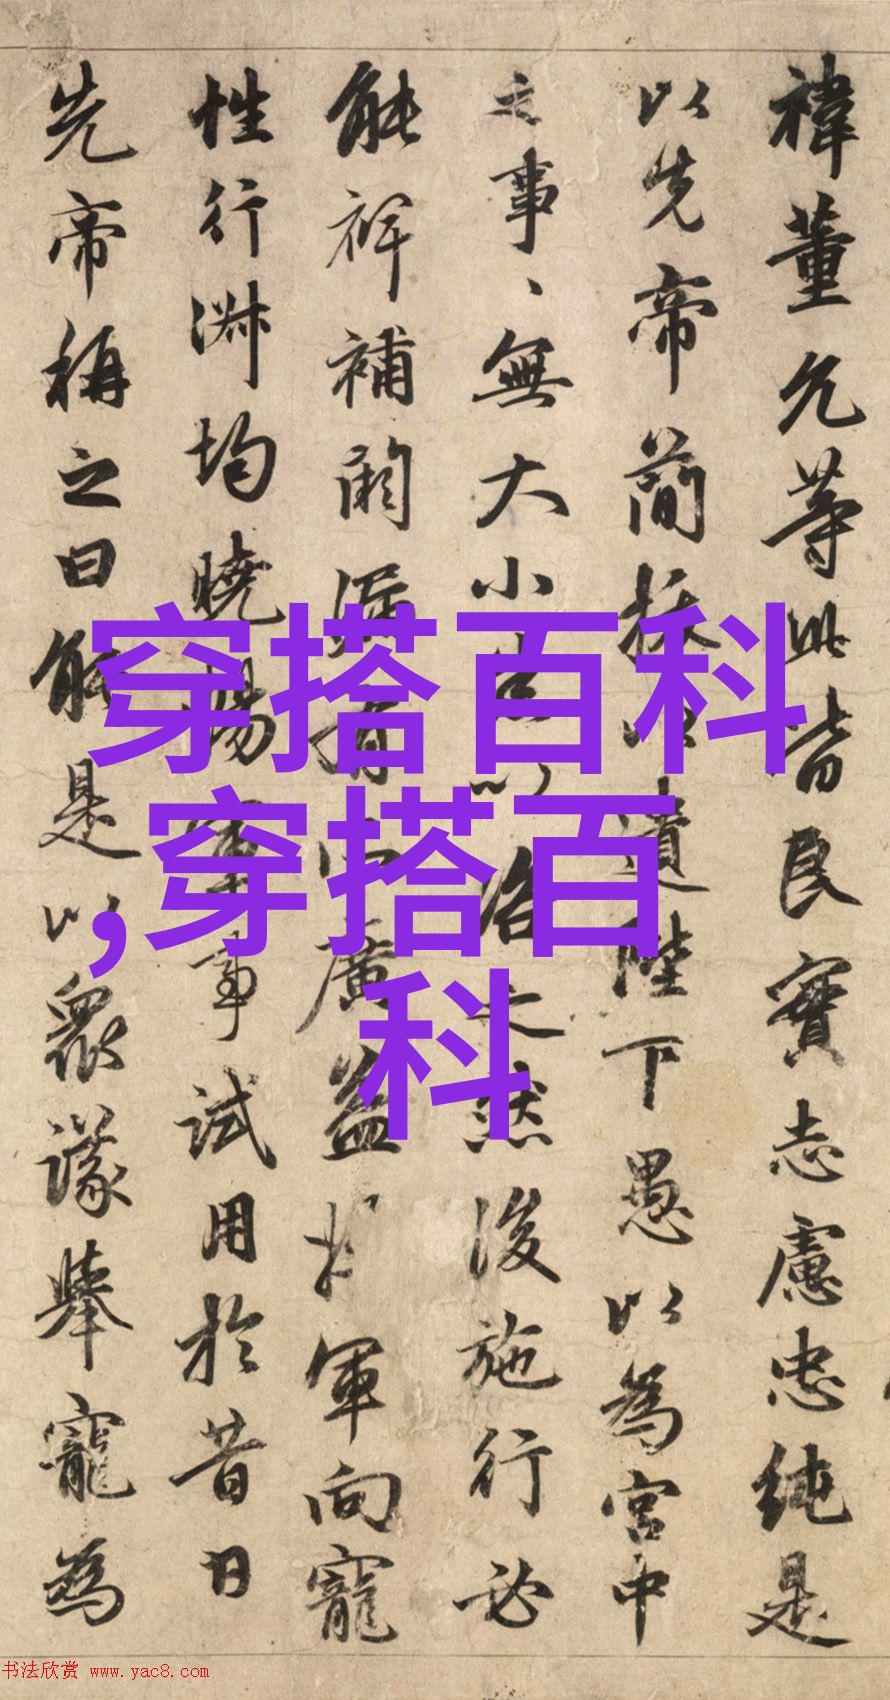 禕董允等此皆良實志慮忠純是
以先帝簡拔以遺陛下愚以為宮中
之事、無大小悉以咨之然後施行必
能裨補闕漏有所廣益將軍向寵
性行淑均曉暢軍事試用於昔日
先帝稱之曰能是以衆議舉寵為
穿搭百科
,穿搭百
科
书法欣赏 www.yac8.com